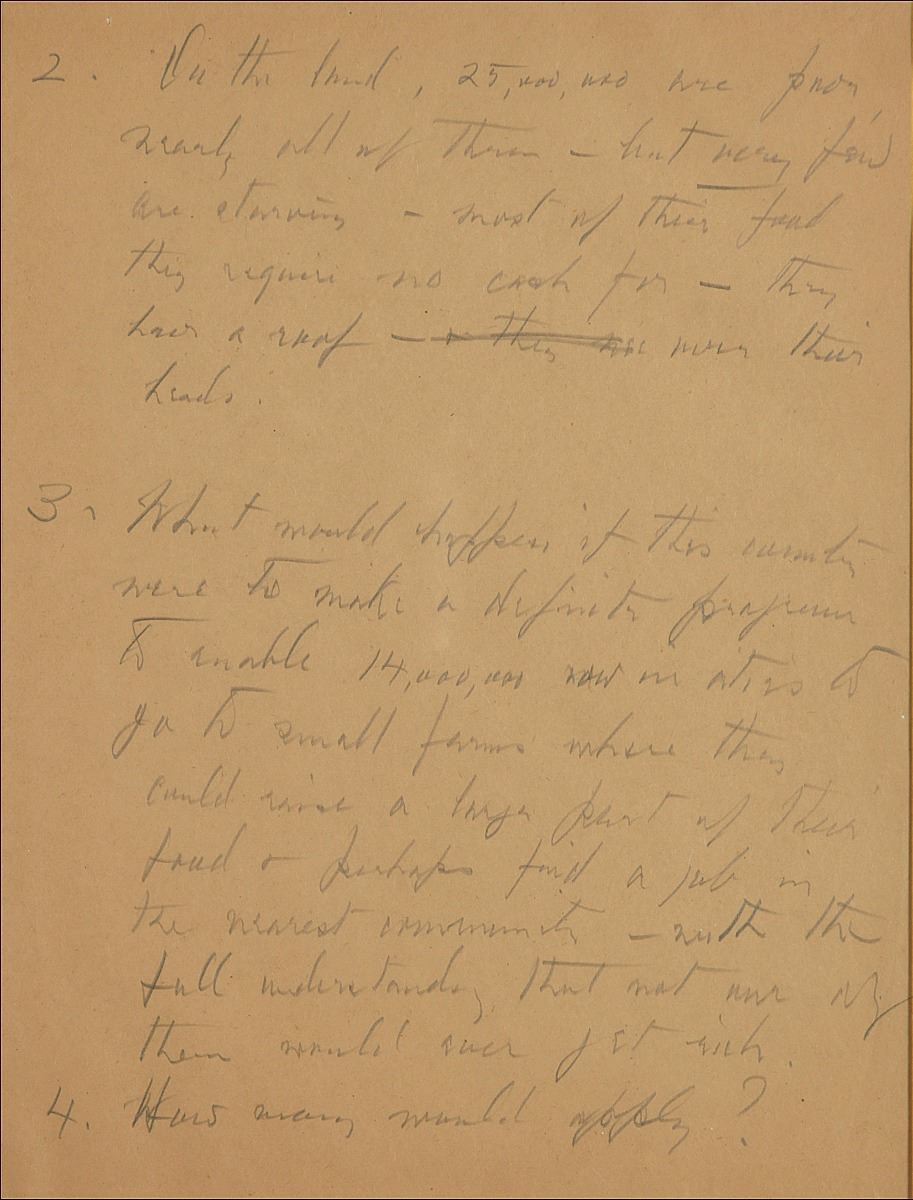 2. On the land, 25,000,000 are poor,
nearly all of them - but very few
are starving - most of their food
they require no cash for - they
have a roof - & they are over their
heads.
3. What would happen if this country
were to make a definite program
to enable 14,000,000 now in cities to
go to small farms where they
could raise a large part of their
food & perhaps find a job in
the nearest community - with the
full understanding that not one of
them would ever get rich.
4. How many would apply?